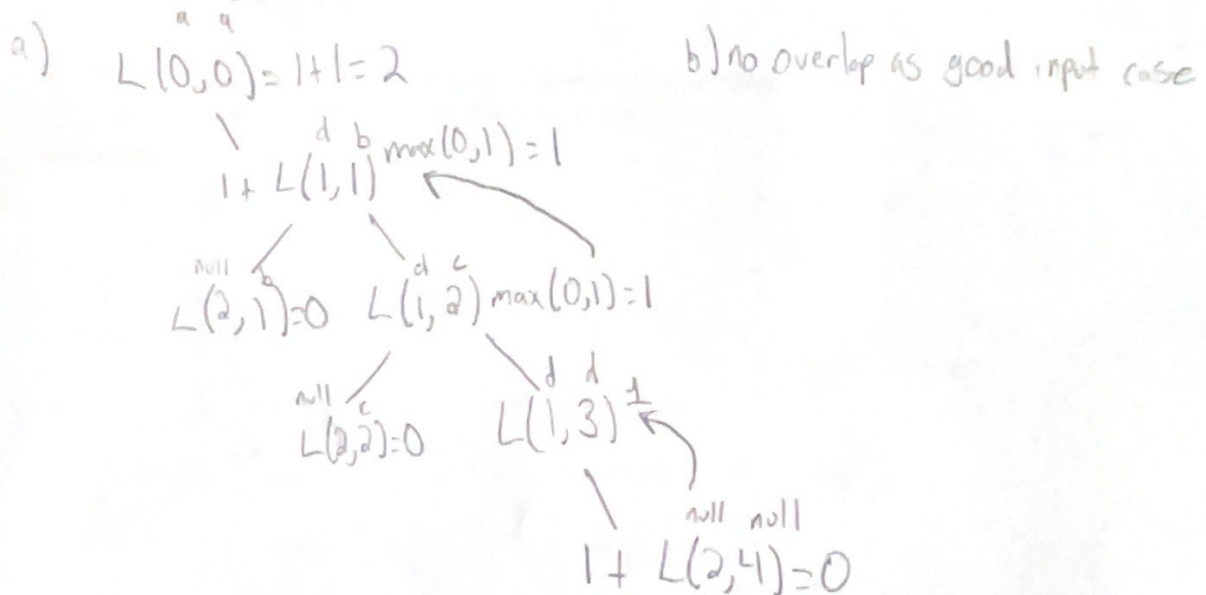 a a
a) L(0,0)=1+1=2
b) no overlap as good input case
d b
1+ L(1,1) max(0,1)=1
null b d c
L(2,1)=0 L(1,2) max(0,1)=1
null c d d
L(2,2)=0 L(1,3) 1
null null
1+ L(2,4)=0